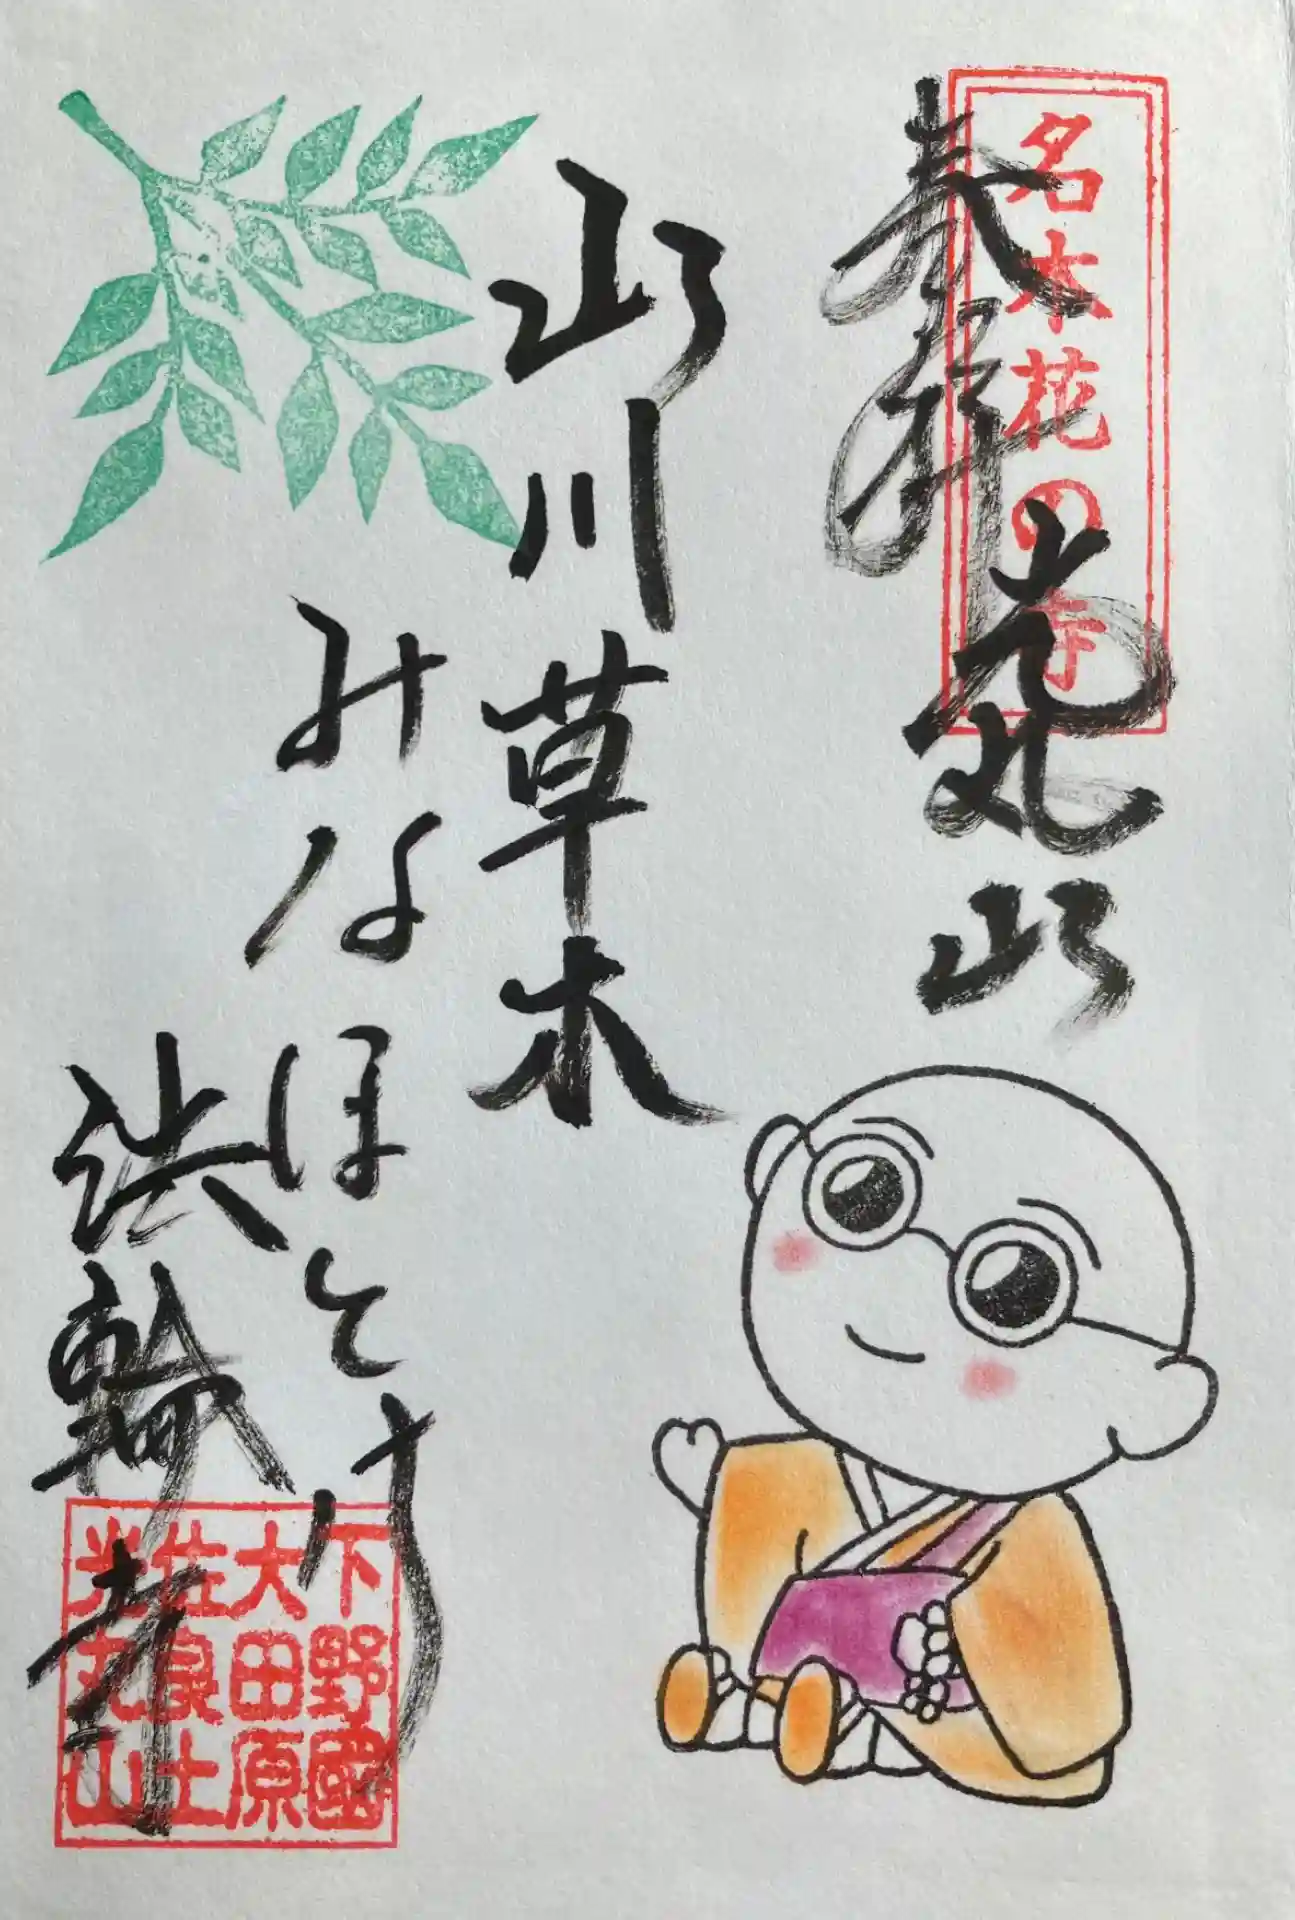 奉拝
光丸山
名木花の寺
山川草木
みなほとけ
法輪寺
下野國
大田原
佐良土
光丸山